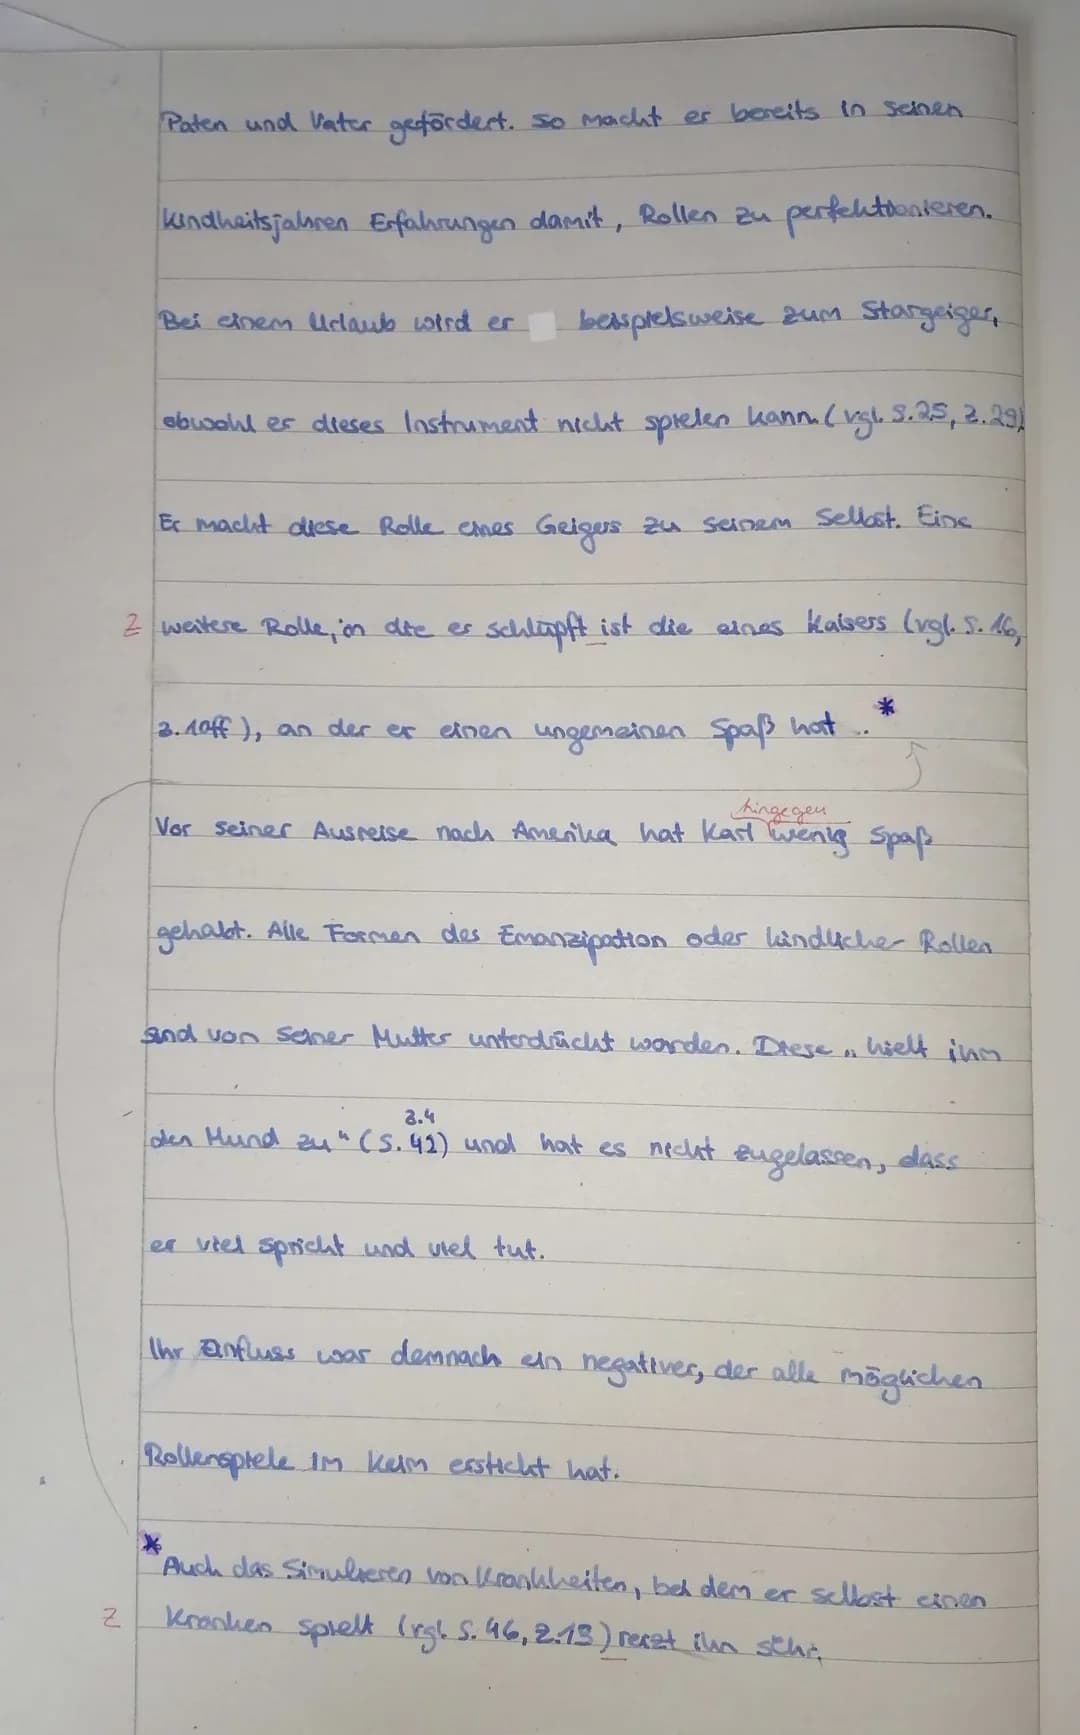 Paten und Vater gefördert. So macht er bereits in seinen
Kindheitsjahren Erfahrungen damit, Rollen zu perfektionieren.
Bei einem Urlaub wird er beispielsweise zum Stargeiger,
obwohl er dieses Instrument nicht spielen kann (vgl. S. 25, Z. 29)
Er macht diese Rolle eines Geigers zu seinem Selbst. Eine
Z weitere Rolle, in die er schlüpft ist die eines Kaisers (vgl. S. 16,
Z. 10ff), an der er einen ungemeinen Spaß hat .. *
hingegen
Vor seiner Ausreise nach Amerika hat Karl wenig Spaß
gehabt. Alle Formen des Emanzipation oder kindlicher Rollen
sind von seiner Mutter unterdrückt worden. Diese „hielt ihm
Z.4
den Mund zu“ (S. 42) und hat es nicht zugelassen, dass
er viel spricht und viel tut.
Ihr Einfluss war demnach ein negativer, der alle möglichen
Rollenspiele im Keim erstickt hat.
* Auch das Simulieren von Krankheiten, bei dem er selbst einen
Z Kranken spielt (vgl. S. 46, Z. 13) reizt ihn sehr.